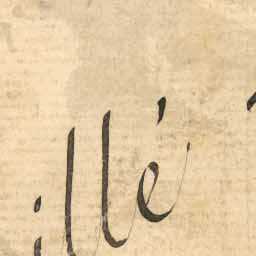 illé